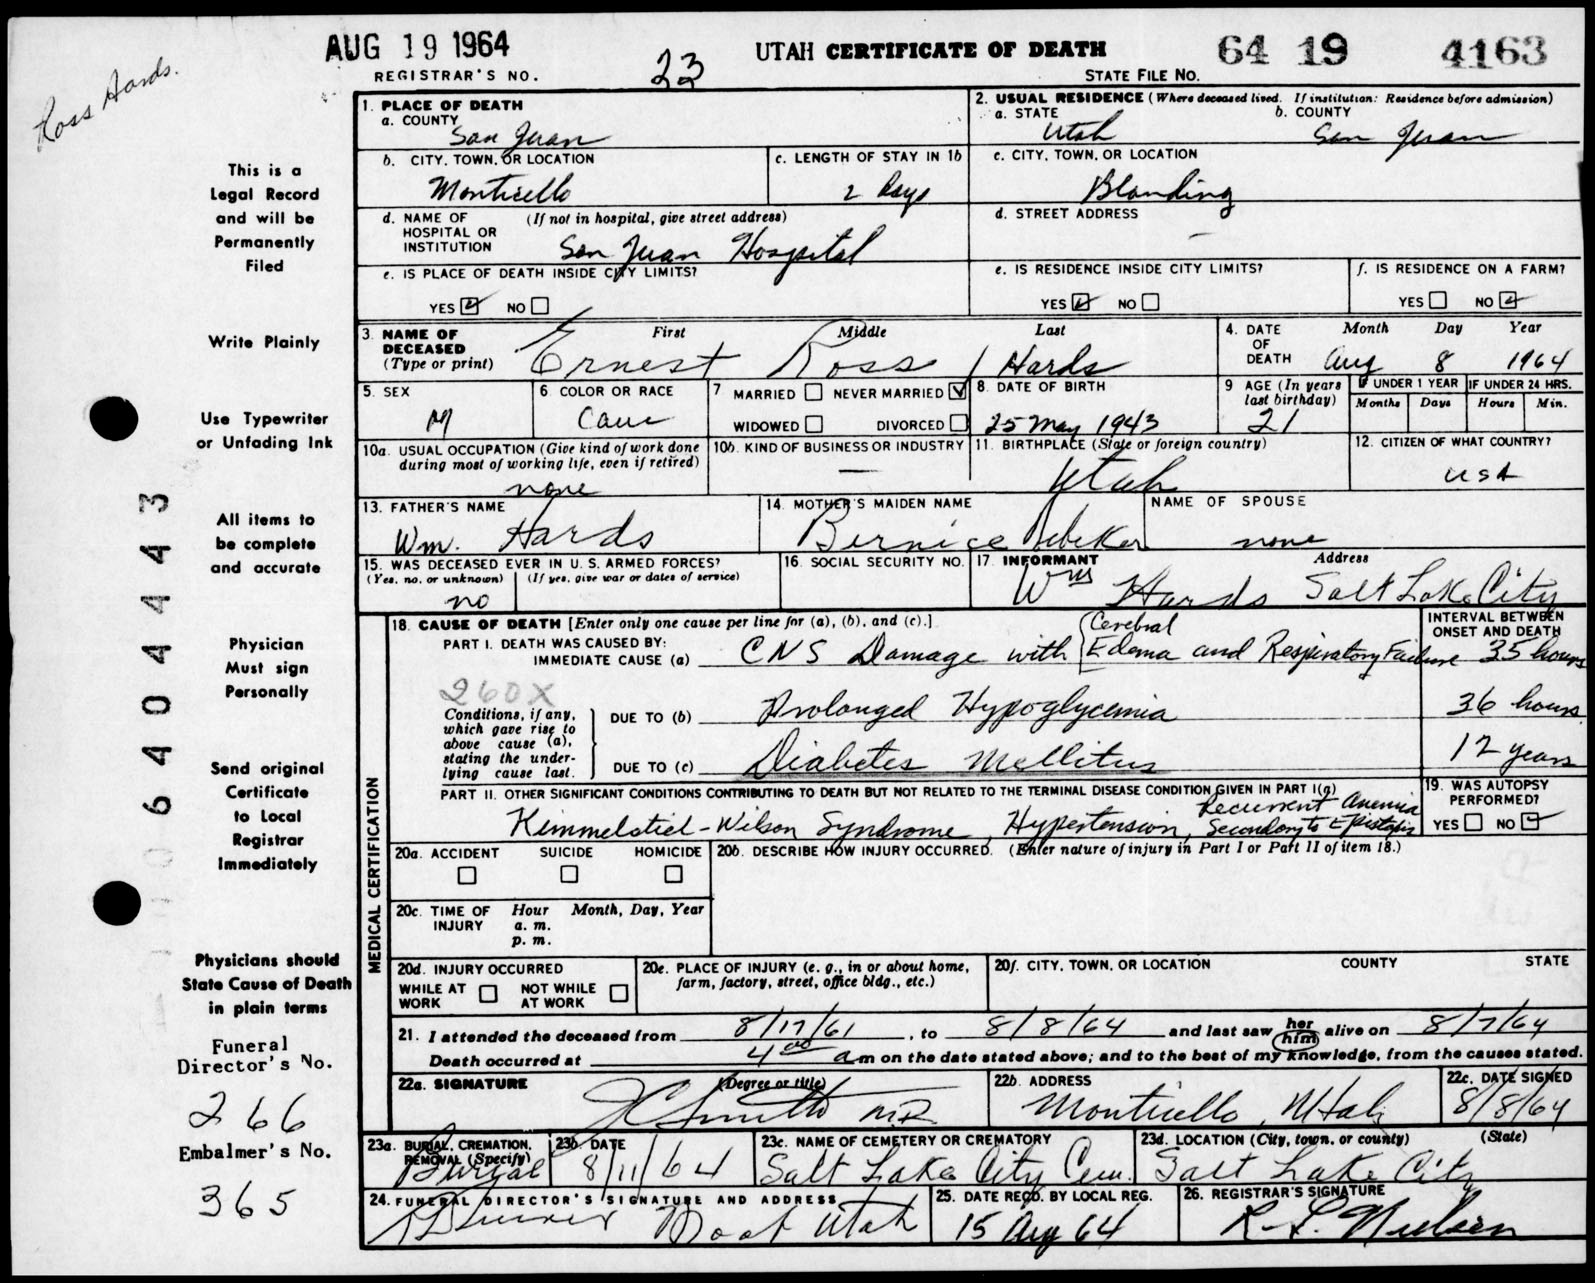 AUG 19 1964
UTAH CERTIFICATE OF DEATH
64 19 4163
REGISTRAR'S NO. 23
STATE FILE NO.
Ross Hards.
This is a
Legal Record
and will be
Permanently
Filed
Write Plainly
Use Typewriter
or Unfading Ink
All items to
be complete
and accurate
Physician
Must sign
Personally
Send original
Certificate
to Local
Registrar
Immediately
Physicians should
State Cause of Death
in plain terms
Funeral
Director's No.
266
Embalmer's No.
365
0640443
1. PLACE OF DEATH
a. COUNTY
San Juan
2. USUAL RESIDENCE (Where deceased lived. If institution: Residence before admission)
a. STATE b. COUNTY
Utah San Juan
b. CITY, TOWN, OR LOCATION
Monticello
c. LENGTH OF STAY IN 1b
2 days
c. CITY, TOWN, OR LOCATION
Blanding
d. NAME OF HOSPITAL OR INSTITUTION (If not in hospital, give street address)
San Juan Hospital
d. STREET ADDRESS
—
e. IS PLACE OF DEATH INSIDE CITY LIMITS?
YES NO
e. IS RESIDENCE INSIDE CITY LIMITS?
YES NO
f. IS RESIDENCE ON A FARM?
YES NO
3. NAME OF DECEASED (Type or print) First Middle Last
Ernest Ross Hards
4. DATE OF DEATH Month Day Year
Aug 8 1964
5. SEX
M
6 COLOR OR RACE
Cauc
7 MARRIED NEVER MARRIED
WIDOWED DIVORCED
8. DATE OF BIRTH
25 May 1943
9 AGE (In years last birthday)
21
IF UNDER 1 YEAR IF UNDER 24 HRS.
Months Days Hours Min.
10a. USUAL OCCUPATION (Give kind of work done during most of working life, even if retired)
none
10b. KIND OF BUSINESS OR INDUSTRY
—
11. BIRTHPLACE (State or foreign country)
Utah
12. CITIZEN OF WHAT COUNTRY?
USA
13. FATHER'S NAME
Wm. Hards
14. MOTHER'S MAIDEN NAME
Bernice
NAME OF SPOUSE
none
15. WAS DECEASED EVER IN U. S. ARMED FORCES?
(Yes, no, or unknown) (If yes, give war or dates of service)
no
16. SOCIAL SECURITY NO.
17. INFORMANT Address
Wm Hards Salt Lake City
18. CAUSE OF DEATH [Enter only one cause per line for (a), (b), and (c).]
INTERVAL BETWEEN ONSET AND DEATH
PART I. DEATH WAS CAUSED BY:
IMMEDIATE CAUSE (a) CNS Damage with Cerebral Edema and Respiratory Failure 35 hours
260X
Conditions, if any, which gave rise to above cause (a), stating the underlying cause last.
DUE TO (b) Prolonged Hypoglycemia 36 hours
DUE TO (c) Diabetes Mellitus 12 years
PART II. OTHER SIGNIFICANT CONDITIONS CONTRIBUTING TO DEATH BUT NOT RELATED TO THE TERMINAL DISEASE CONDITION GIVEN IN PART I(a)
Kimmelstiel-Wilson Syndrome, Hypertension, Recurrent Anemia Secondary to Epistaxis
19. WAS AUTOPSY PERFORMED?
YES NO
20a. ACCIDENT SUICIDE HOMICIDE
20b. DESCRIBE HOW INJURY OCCURRED. (Enter nature of injury in Part I or Part II of item 18.)
20c. TIME OF INJURY Hour Month, Day, Year
a. m.
p. m.
20d. INJURY OCCURRED
WHILE AT WORK NOT WHILE AT WORK
20e. PLACE OF INJURY (e. g., in or about home, farm, factory, street, office bldg., etc.)
20f. CITY, TOWN, OR LOCATION COUNTY STATE
MEDICAL CERTIFICATION
21. I attended the deceased from 8/17/61, to 8/8/64 and last saw her him alive on 8/7/64
Death occurred at 4 00 a m on the date stated above; and to the best of my knowledge, from the causes stated.
22a. SIGNATURE (Degree or title)
J C Smith MD
22b. ADDRESS
Monticello, Utah
22c. DATE SIGNED
8/8/64
23a. BURIAL, CREMATION, REMOVAL (Specify)
Burial
23b. DATE
8/11/64
23c. NAME OF CEMETERY OR CREMATORY
Salt Lake City Cem.
23d. LOCATION (City, town, or county) (State)
Salt Lake City
24. FUNERAL DIRECTOR'S SIGNATURE AND ADDRESS
Moab Utah
25. DATE REC'D. BY LOCAL REG.
15 Aug 64
26. REGISTRAR'S SIGNATURE
R. L. Nielson